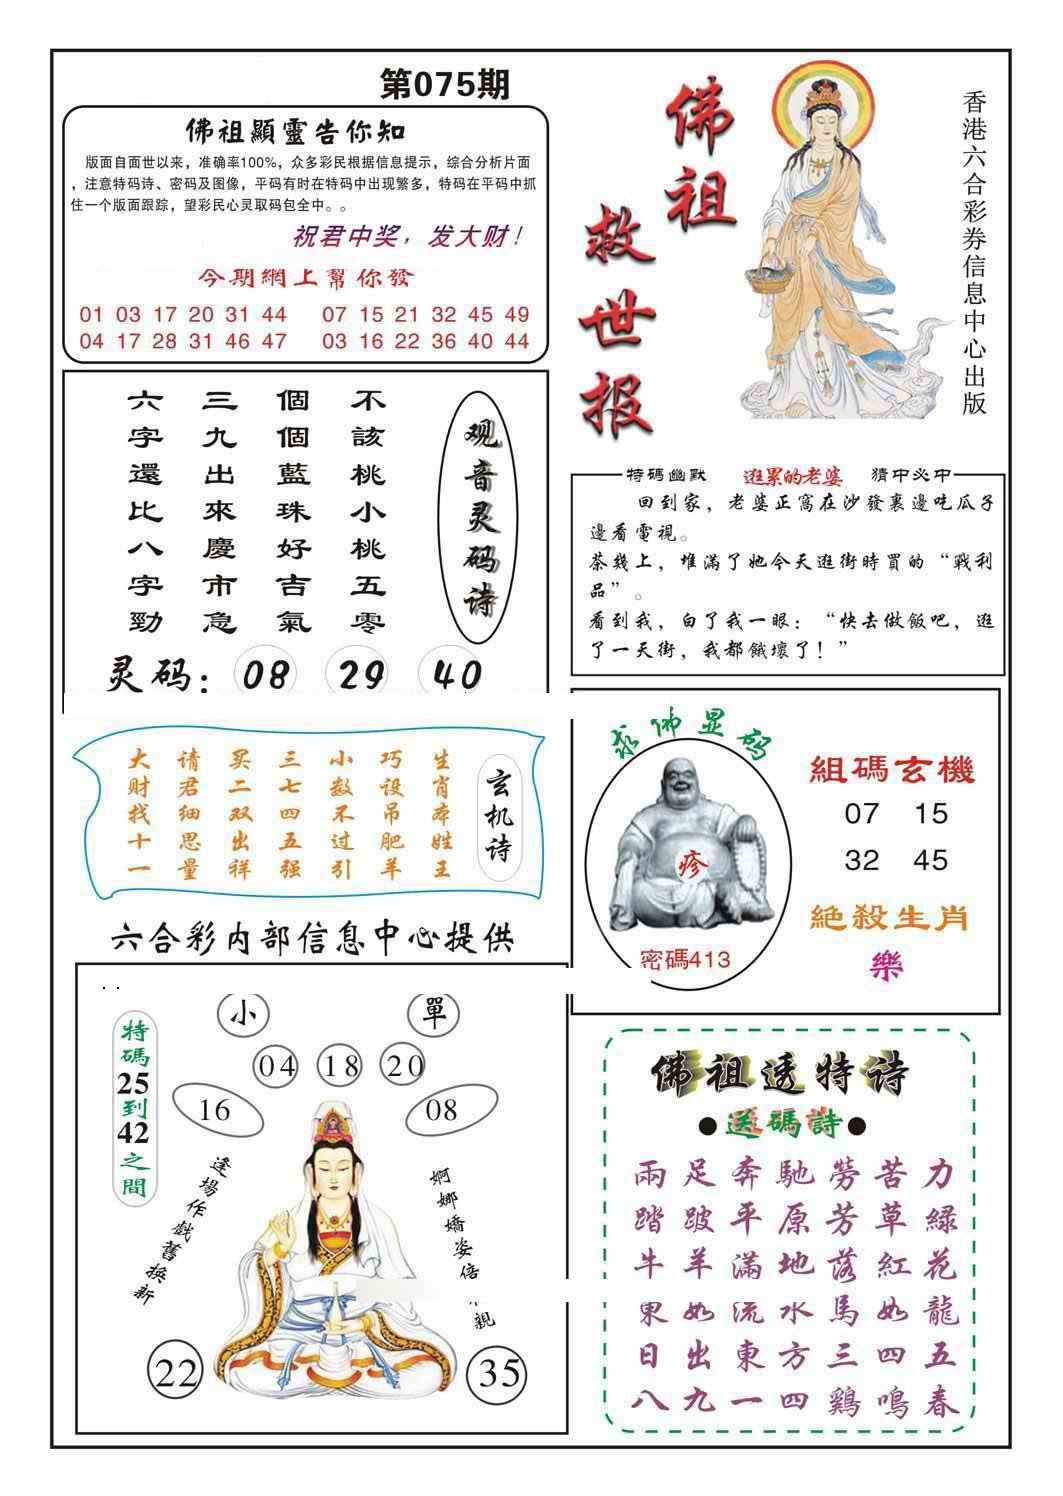 第075期
佛祖顯靈告你知
版面自面世以来，准确率100%，众多彩民根据信息提示，综合分析片面
，注意特码诗、密码及图像，平码有时在特码中出现繁多，特码在平码中抓
住一个版面跟踪，望彩民心灵取码包全中。。
祝君中奖，发大财！
今期網上幫你發
01 03 17 20 31 44 07 15 21 32 45 49
04 17 28 31 46 47 03 16 22 36 40 44
佛祖
救世报
香港六合彩券信息中心出版
观音灵码诗
不該桃小桃五零
個個藍珠好吉氣
三九出來慶市急
六字還比八字勁
灵码：08 29 40
特碼幽默 逛累的老婆 猜中必中
回到家，老婆正窩在沙發裏邊吃瓜子
邊看電視。
茶幾上，堆滿了她今天逛街時買的“戰利
品”。
看到我，白了我一眼：“快去做飯吧，逛
了一天街，我都餓壞了！”
玄机诗
生肖本姓王
巧设吊肥羊
小数不过引
三七四五强
买二双出祥
请君细思量
大财找十一
求佛显码
疹
密碼413
組碼玄機
07 15
32 45
絶殺生肖
樂
六合彩内部信息中心提供
小 單
04 18 20
16 08
特碼25到42之間
逢場作戲舊換新
婀娜嬌姿倍 親
22 35
佛祖透特诗
●送碼詩●
兩足奔馳勞苦力
踏跛平原芳草緑
牛羊滿地落紅花
東如流水馬如龍
日出東方三四五
八九一四鷄鳴春